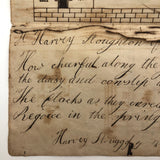 Harvey Stoughton
How cheerful along the
the daisy and cowslip
The flocks as they
Rejoice in the
Harvey